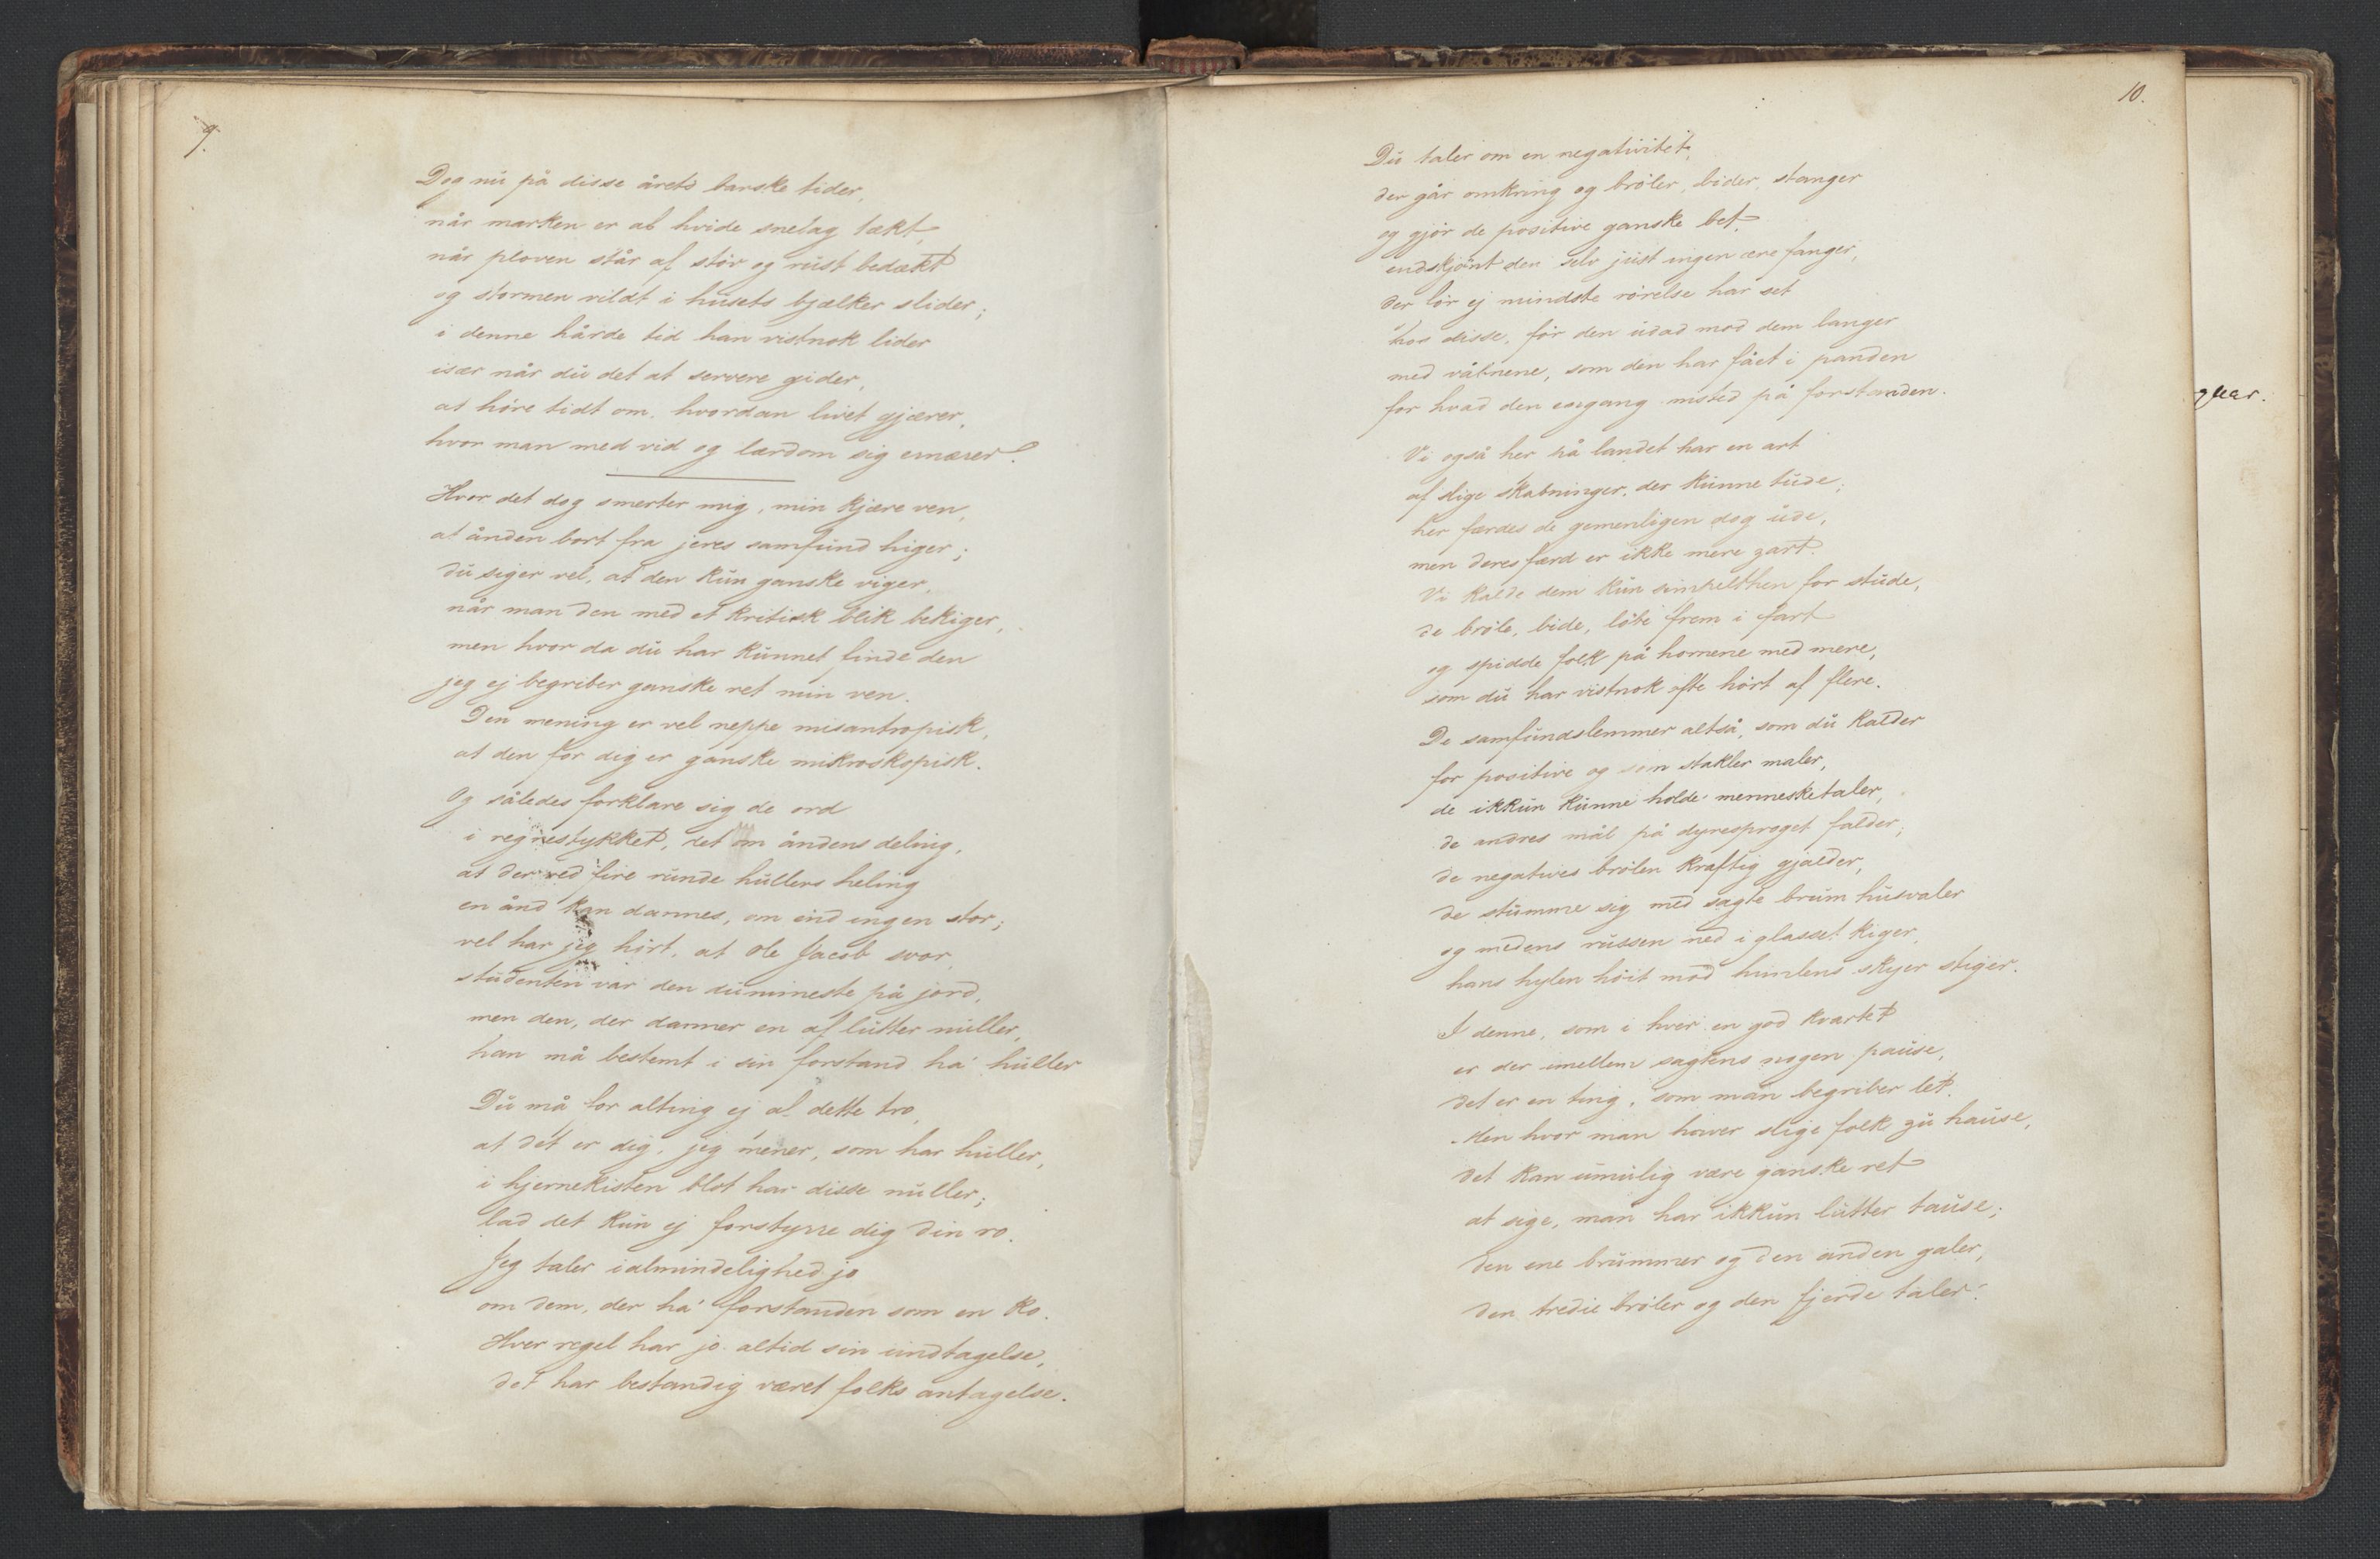 9.
Dog nu på disse årets barske tider,
når marken er af hvide snelag takt,
når ploven står af støv og rust bedækt
og stormen vildt i husets bjælker slider;
i denne hårde tid han vistnok lider
især når du det at servere gider,
at høre tidt om, hvordan livet gjærer,
hvor man med vid og lærdom sig ernærer?
Hvor det dog smerter mig, min kjære ven,
at ånden bort fra jeres samfund higer;
du siger vel, at den kun ganske viger,
når man den med et kritisk blik bekiger,
men hvor da du har kunnet finde den
jeg ej begriber ganske ret min ven.
Den mening er vel neppe misantropisk,
at den for dig er ganske mikroskopisk.
Og således forklare sig de ord
i regnestykket, det om åndens deling,
at der ved fire runde hullers heling
en ånd kan dannes, om end ingen stor;
vel har jeg hørt, at Ole Jacob svor,
studenten var den dummeste på jord,
men den, der danner en af lutter nuller,
han må bestemt i sin forstand ha' huller
Du må for alting ej af dette tro,
at det er dig, jeg mener, som har huller,
i hjernekisten blot har disse nuller;
lad det kun ej forstyrre dig din ro.
Jeg taler ialmindelighed jo
om dem, der ha' forstanden som en ko.
Hver regel har jo altid sin undtagelse,
det har bestandig været folks antagelse.
10.
Du taler om en negativitet,
der går omkring og brøler, bider, stanger
og gjør de positive ganske bet,
endskjønt den selv just ingen ære fanger,
der før ej mindste rørelse har set
hos disse, før den udad mod dem langer
med våbnene, som den har fået i panden
for hvad den engang misted på forstanden.
Vi også her på landet har en art
af slige skabninger, der kunne tude;
her færdes de gemenligen dog ude,
men deres færd er ikke mere zart.
Vi kalde dem kun simpelthen for stude,
de brøle, bide, løbe frem i fart
og spidde folk på hornene med mere,
som du har vistnok ofte hørt af flere.
De samfundslemmer altså, som du kalder
for positive og som stakler maler,
de ikkun kunne holde mennesketaler,
de andres mål på dyresproget falder;
de negatives brølen kraftig gjælder,
de stumme sig med sagte brum husvaler
og medens russen ned i glasset kiger,
hans hylen høit mod himlens skyer stiger.
I denne, som i hver en god kvartet
er der imellem sagtens nogen pause,
det er en ting, som man begriber let.
Men hvor man haver slige folk zu hause,
det kan umulig være ganske ret
at sige, man har ikkun lutter tause;
den ene brummer og den anden galer,
den tredie brøler og den fjerde taler.